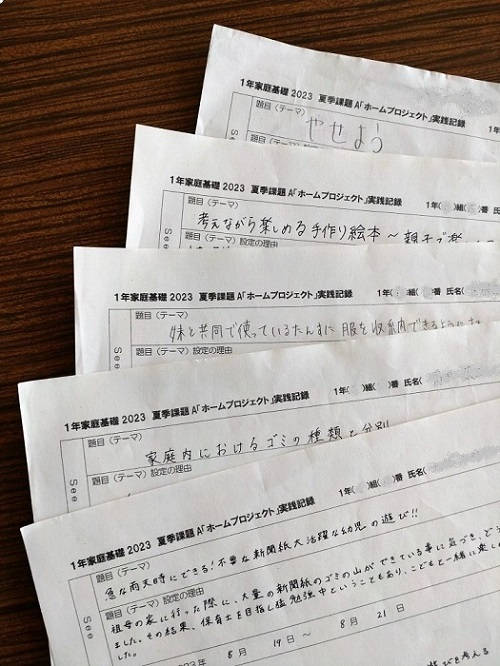 1年家庭基礎 2023 夏季課題 A「ホームプロジェクト」実践記録
題目(テーマ)
やせよう
題目(テーマ)設定
See
1年家庭基礎 2023 夏季課題 A「ホームプロジェクト」実践記録 1年( )組( )番 氏
題目(テーマ)
考えながら楽しめる手作り絵本~親子で
設定の理由
See
1年家庭基礎 2023 夏季課題 A「ホームプロジェクト」実践記録 1年( )組( )番 氏名(
題目(テーマ)
妹と共同で使っているたんすに服を収納できるように
題目(テーマ)設定の理由
See
1年家庭基礎 2023 夏季課題 A「ホームプロジェクト」実践記録 1年( )組( )番 氏名(
題目(テーマ)
家庭内におけるゴミの種類と分別
題目(テーマ)設定の理由
See
1年家庭基礎 2023 夏季課題 A「ホームプロジェクト」実践記録 1年( )組( )番 氏名(
題目(テーマ)
急な雨天時にできる!不要な新聞紙大活躍な幼児の遊び!!
題目(テーマ)設定の理由
祖母の家に行った際に、大量の新聞紙のゴミの山ができている事に気づき、
ました。その結果、保育士を目指し猛勉強中ということもあり、こどもと一緒に楽し
した。
See
年 8月 19日 ~ 8月 21日
遊びを考える